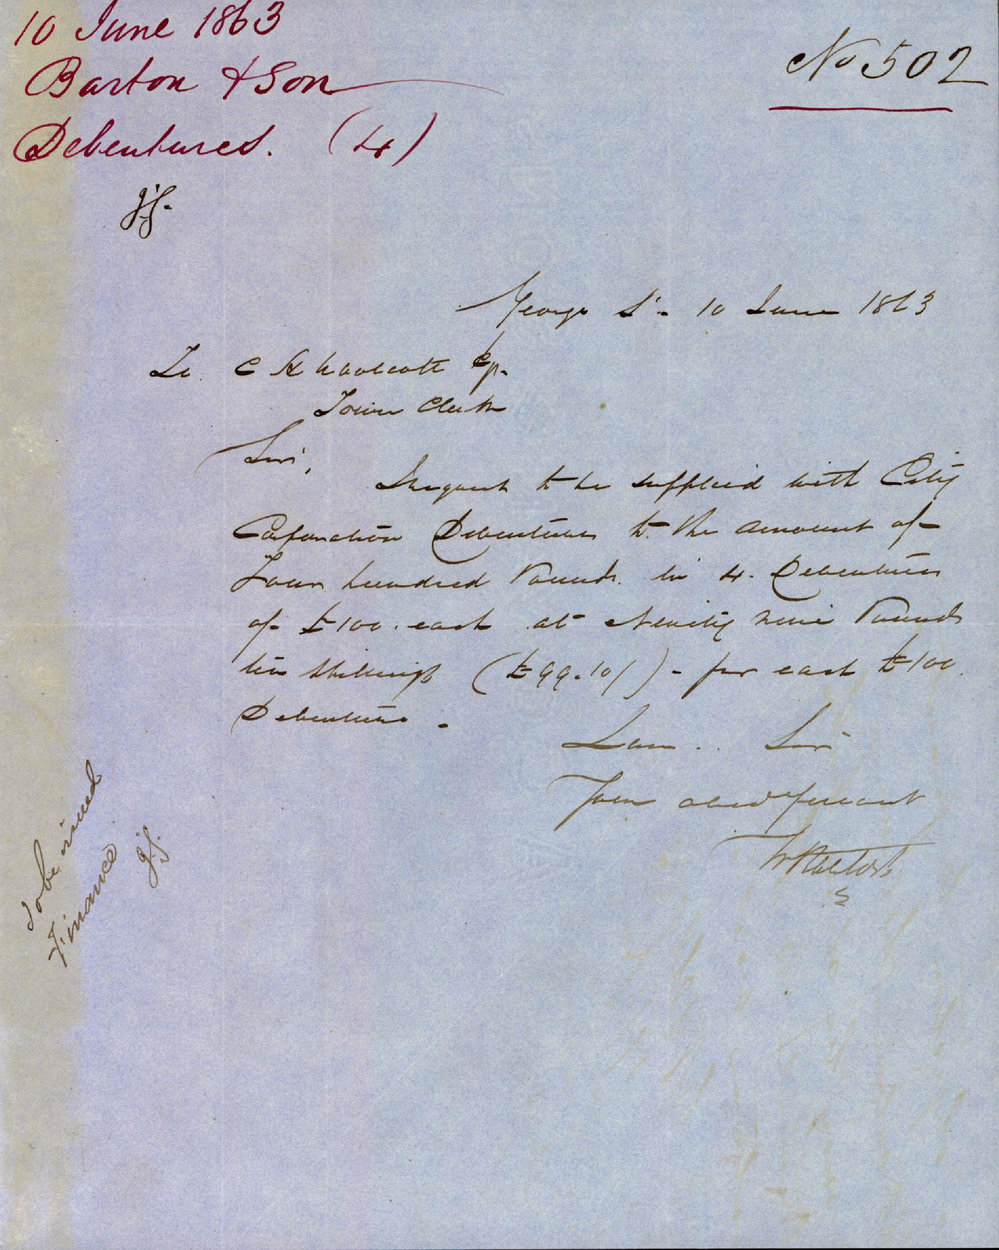 10 June 1863
Barton & Son
Debentures. (4)
No 502
J.G.
George St. 10 June 1863
To C H Woolcott Esq.
Town Clerk
Sir,
I request to be supplied with City
Corporation Debentures to the amount of
Four hundred Pounds in 4 Debentures
of £100 each at Ninety nine Pounds
ten shillings (£99.10/) - for each £100
Debenture -
I am .. Sir
Your obed Servant
To be issued
Finance J.G.